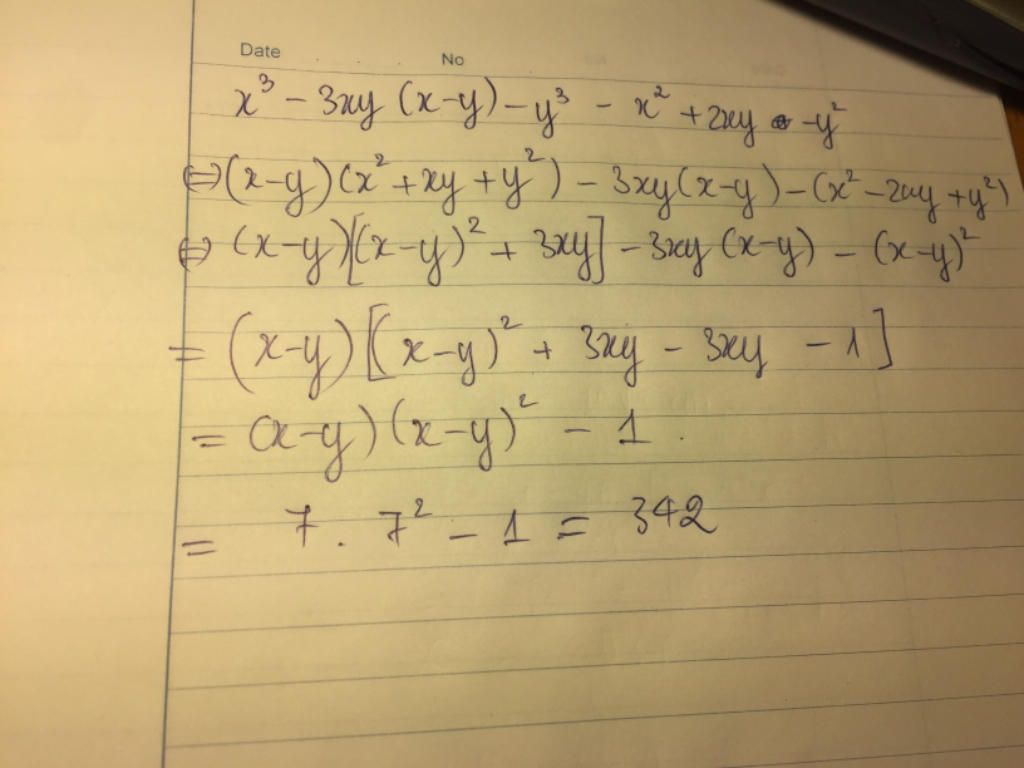 Date No
x³ - 3xy (x-y) - y³ - x² + 2xy - y²
⇔ (x-y)(x² + xy + y²) - 3xy(x-y) - (x² - 2xy + y²)
⇔ (x-y)[(x-y)² + 3xy] - 3xy (x-y) - (x-y)²
= (x-y)[(x-y)² + 3xy - 3xy - 1]
= (x-y)(x-y)² - 1.
= 7 . 7² - 1 = 342